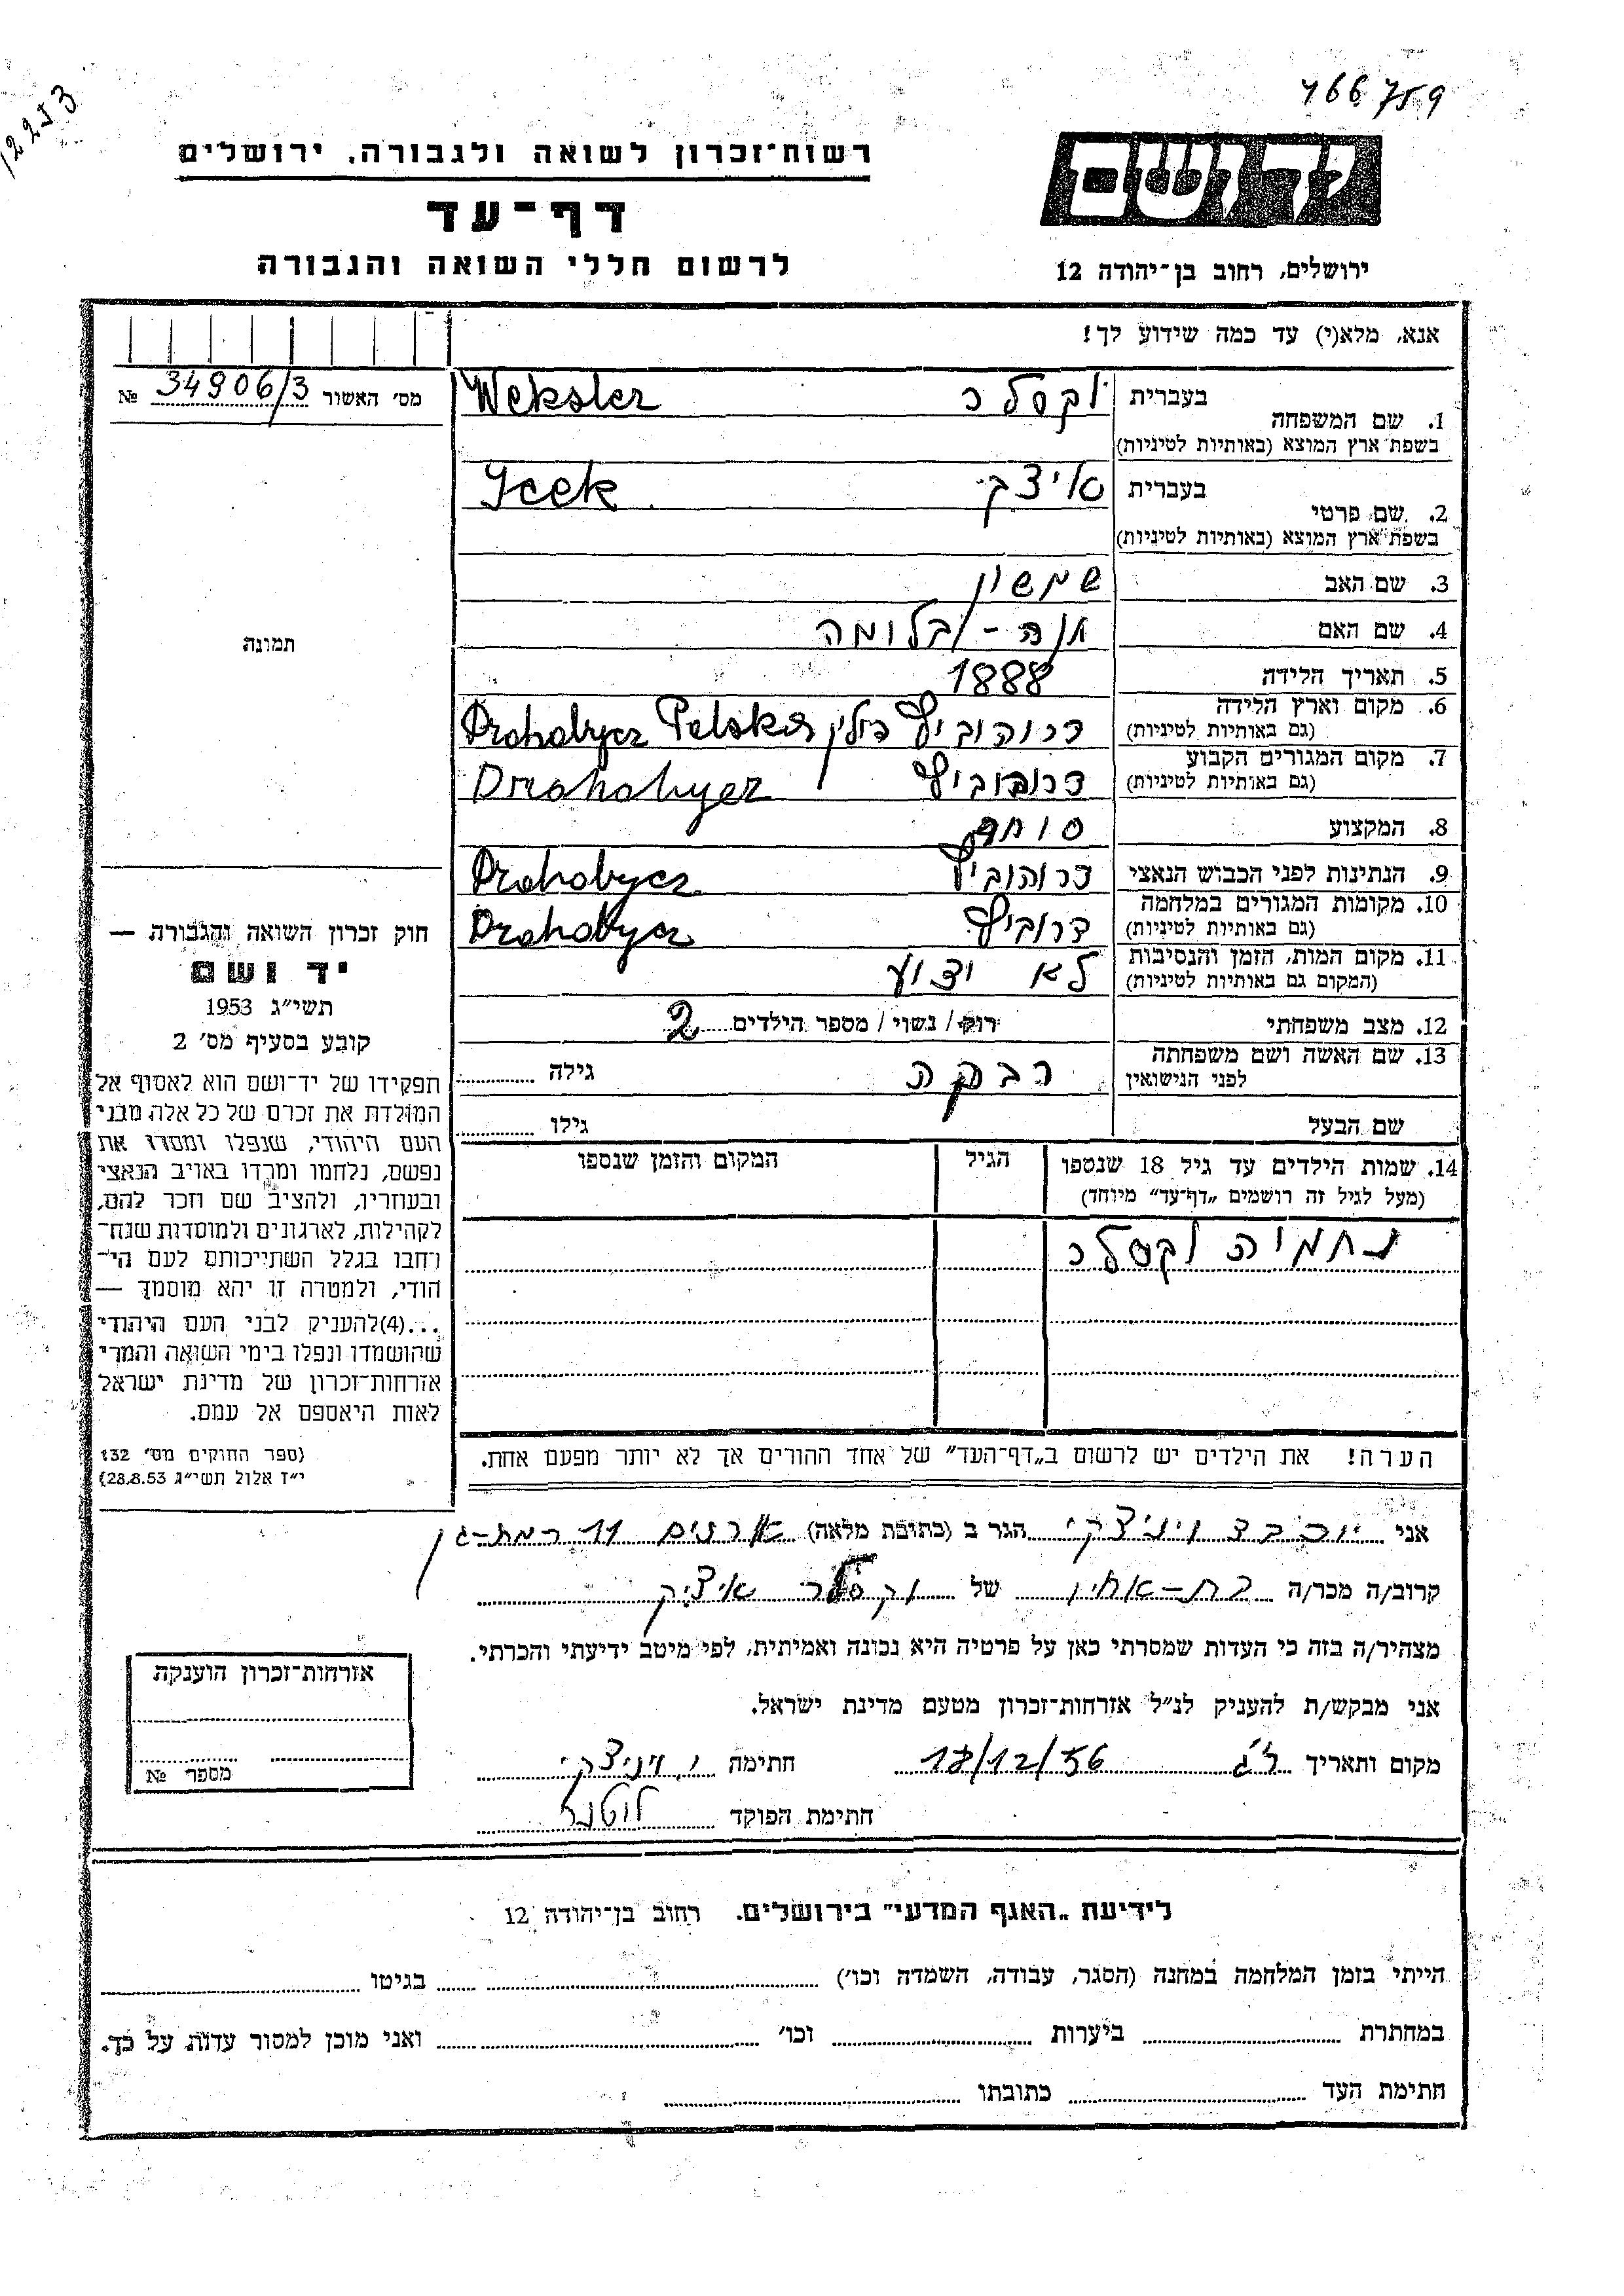 12253
466759
רשות־זכרון לשואה ולגבורה, ירושלים
יד ושם
דף־עד
לרשום חללי השואה והגבורה
ירושלים, רחוב בן־יהודה 12
אנא, מלא(י) עד כמה שידוע לך!
מס׳ האשור 34906/3 №
1. שם המשפחה בעברית וקסלר Weksler
בשפת ארץ המוצא (באותיות לטיניות)
2. שם פרטי בעברית איצק Icek
בשפת ארץ המוצא (באותיות לטיניות)
3. שם האב שמשון
4. שם האם
תמונה
5. תאריך הלידה 1888
6. מקום וארץ הלידה דרוהוביץ פולין Drohobycz Polska
(גם באותיות לטיניות)
7. מקום המגורים הקבוע דרוהוביץ Drohobycz
(גם באותיות לטיניות)
8. המקצוע סוחר
9. הנתינות לפני הכבוש הנאצי דרוהוביץ Drohobycz
10. מקומות המגורים במלחמה דרוביץ Drohobycz
(גם באותיות לטיניות)
11. מקום המות, הזמן והנסיבות לא ידוע
(המקום גם באותיות לטיניות)
12. מצב משפחתי רוק / נשוי / מספר הילדים 2
13. שם האשה ושם משפחתה רבקה גילה
לפני הנישואין
שם הבעל גילו
14. שמות הילדים עד גיל 18 שנספו הגיל המקום והזמן שנספו
(מעל לגיל זה רושמים „דף־עד״ מיוחד)
נחמיה וקסלר
חוק זכרון השואה והגבורה —
יד ושם
תשי״ג 1953
קובע בסעיף מס׳ 2
תפקידו של יד־ושם הוא לאסוף אל
המולדת את זכרם של כל אלה מבני
העם היהודי, שנפלו ומסרו את
נפשם, נלחמו ומרדו באויב הנאצי
ובעוזריו, ולהציב שם וזכר להם,
לקהילות, לארגונים ולמוסדות שנח־
רחבו בגלל השתייכותם לעם הי־
הודי, ולמטרה זו יהא מוסמך —
...(4)להעניק לבני העם היהודי
שהושמדו ונפלו בימי השואה והמרי
אזרחות־זכרון של מדינת ישראל
לאות היאספם אל עמם.
(ספר החוקים מס׳ 132
י״ז אלול תשי״ג 28.8.53)
הערה! את הילדים יש לרשום ב„דף־העד״ של אחד ההורים אך לא יותר מפעם אחת.
אני יוכבד ויניצקי הגר ב (כתובת מלאה) ארנים 11 רמת-גן
קרוב/ה מכר/ה בת-אחיו של וקסלר איציק
מצהיר/ה בזה כי העדות שמסרתי כאן על פרטיה היא נכונה ואמיתית, לפי מיטב ידיעתי והכרתי.
אני מבקש/ת להעניק לנ״ל אזרחות־זכרון מטעם מדינת ישראל.
מקום ותאריך ר״ג 18/12/56 חתימה י. ויניצקי
חתימת הפוקד
אזרחות־זכרון הוענקה
מספר №
לידיעת „האגף המדעי״ בירושלים. רחוב בן־יהודה 12
הייתי בזמן המלחמה במחנה (הסגר, עבודה, השמדה וכו׳) בגיטו
במחתרת ביערות וכו׳ ואני מוכן למסור עדות על כך.
חתימת העד כתובתו